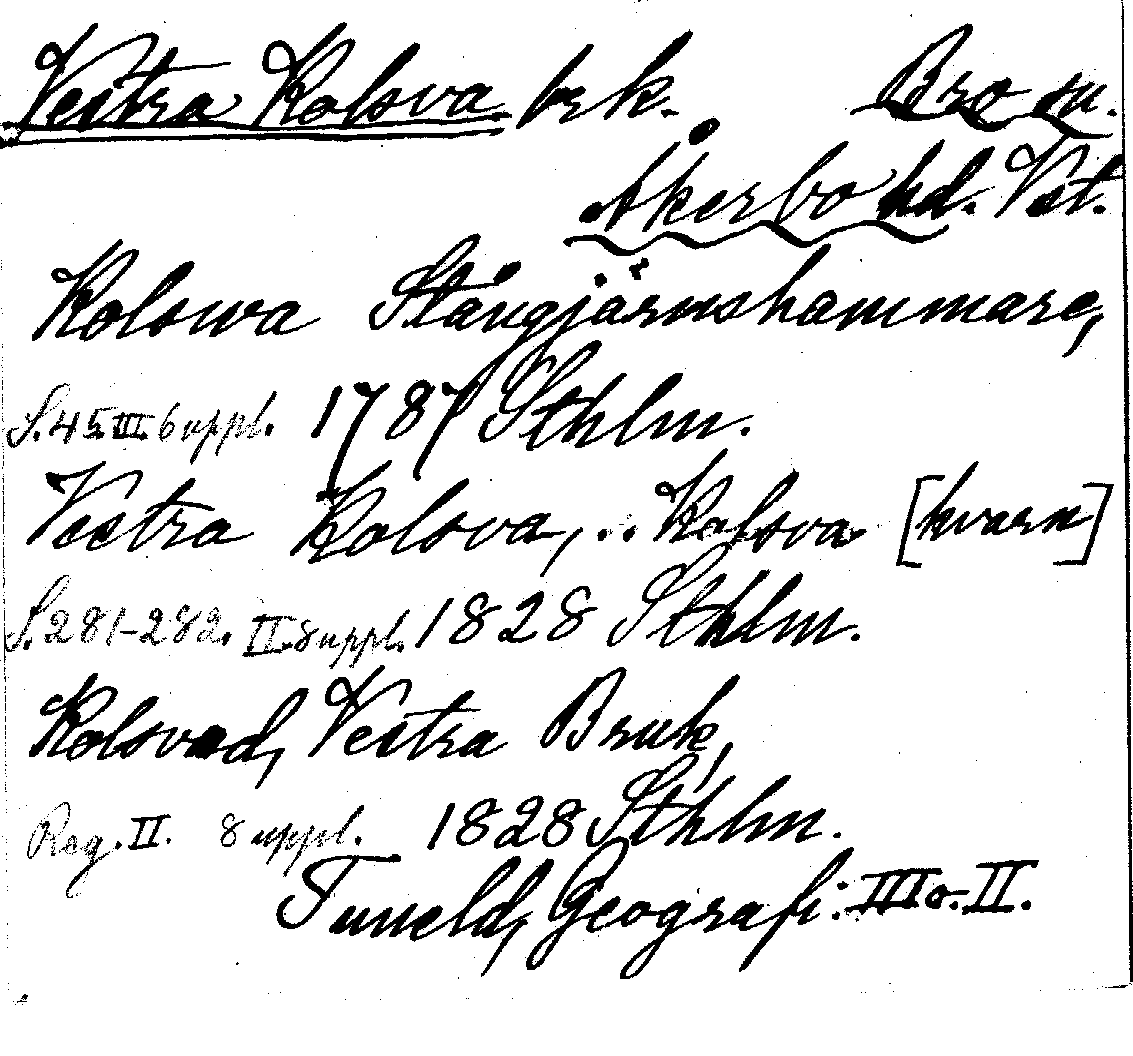 Vestra Kolsva brk. Bro sn.
Åkerbo hd. Vst.
Kolswa Stångjärnshammare,
S. 45. III. 6 uppl. 1787 Sthlm.
Vestra Kolsva, .. Kolsva [kvarn]
S. 281-282. II. 8 uppl. 1828 Sthlm.
Kolsvad, Vestra Bruk,
Reg. II. 8 uppl. 1828 Sthlm.
Tuneld, Geografi: III o. II.